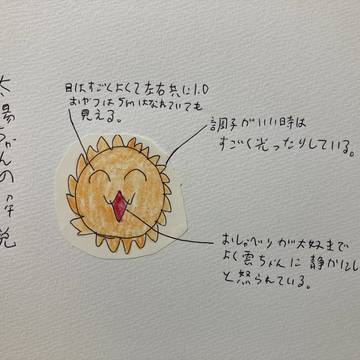 太陽ちゃんの解説
目はすごくよくて左右共に1.0
おやつは5mはなれていても
見える。
調子がいい時は
すごく光ったりしている。
おしゃべりが大好きで
よく雲ちゃんに静かにし
と怒られている。